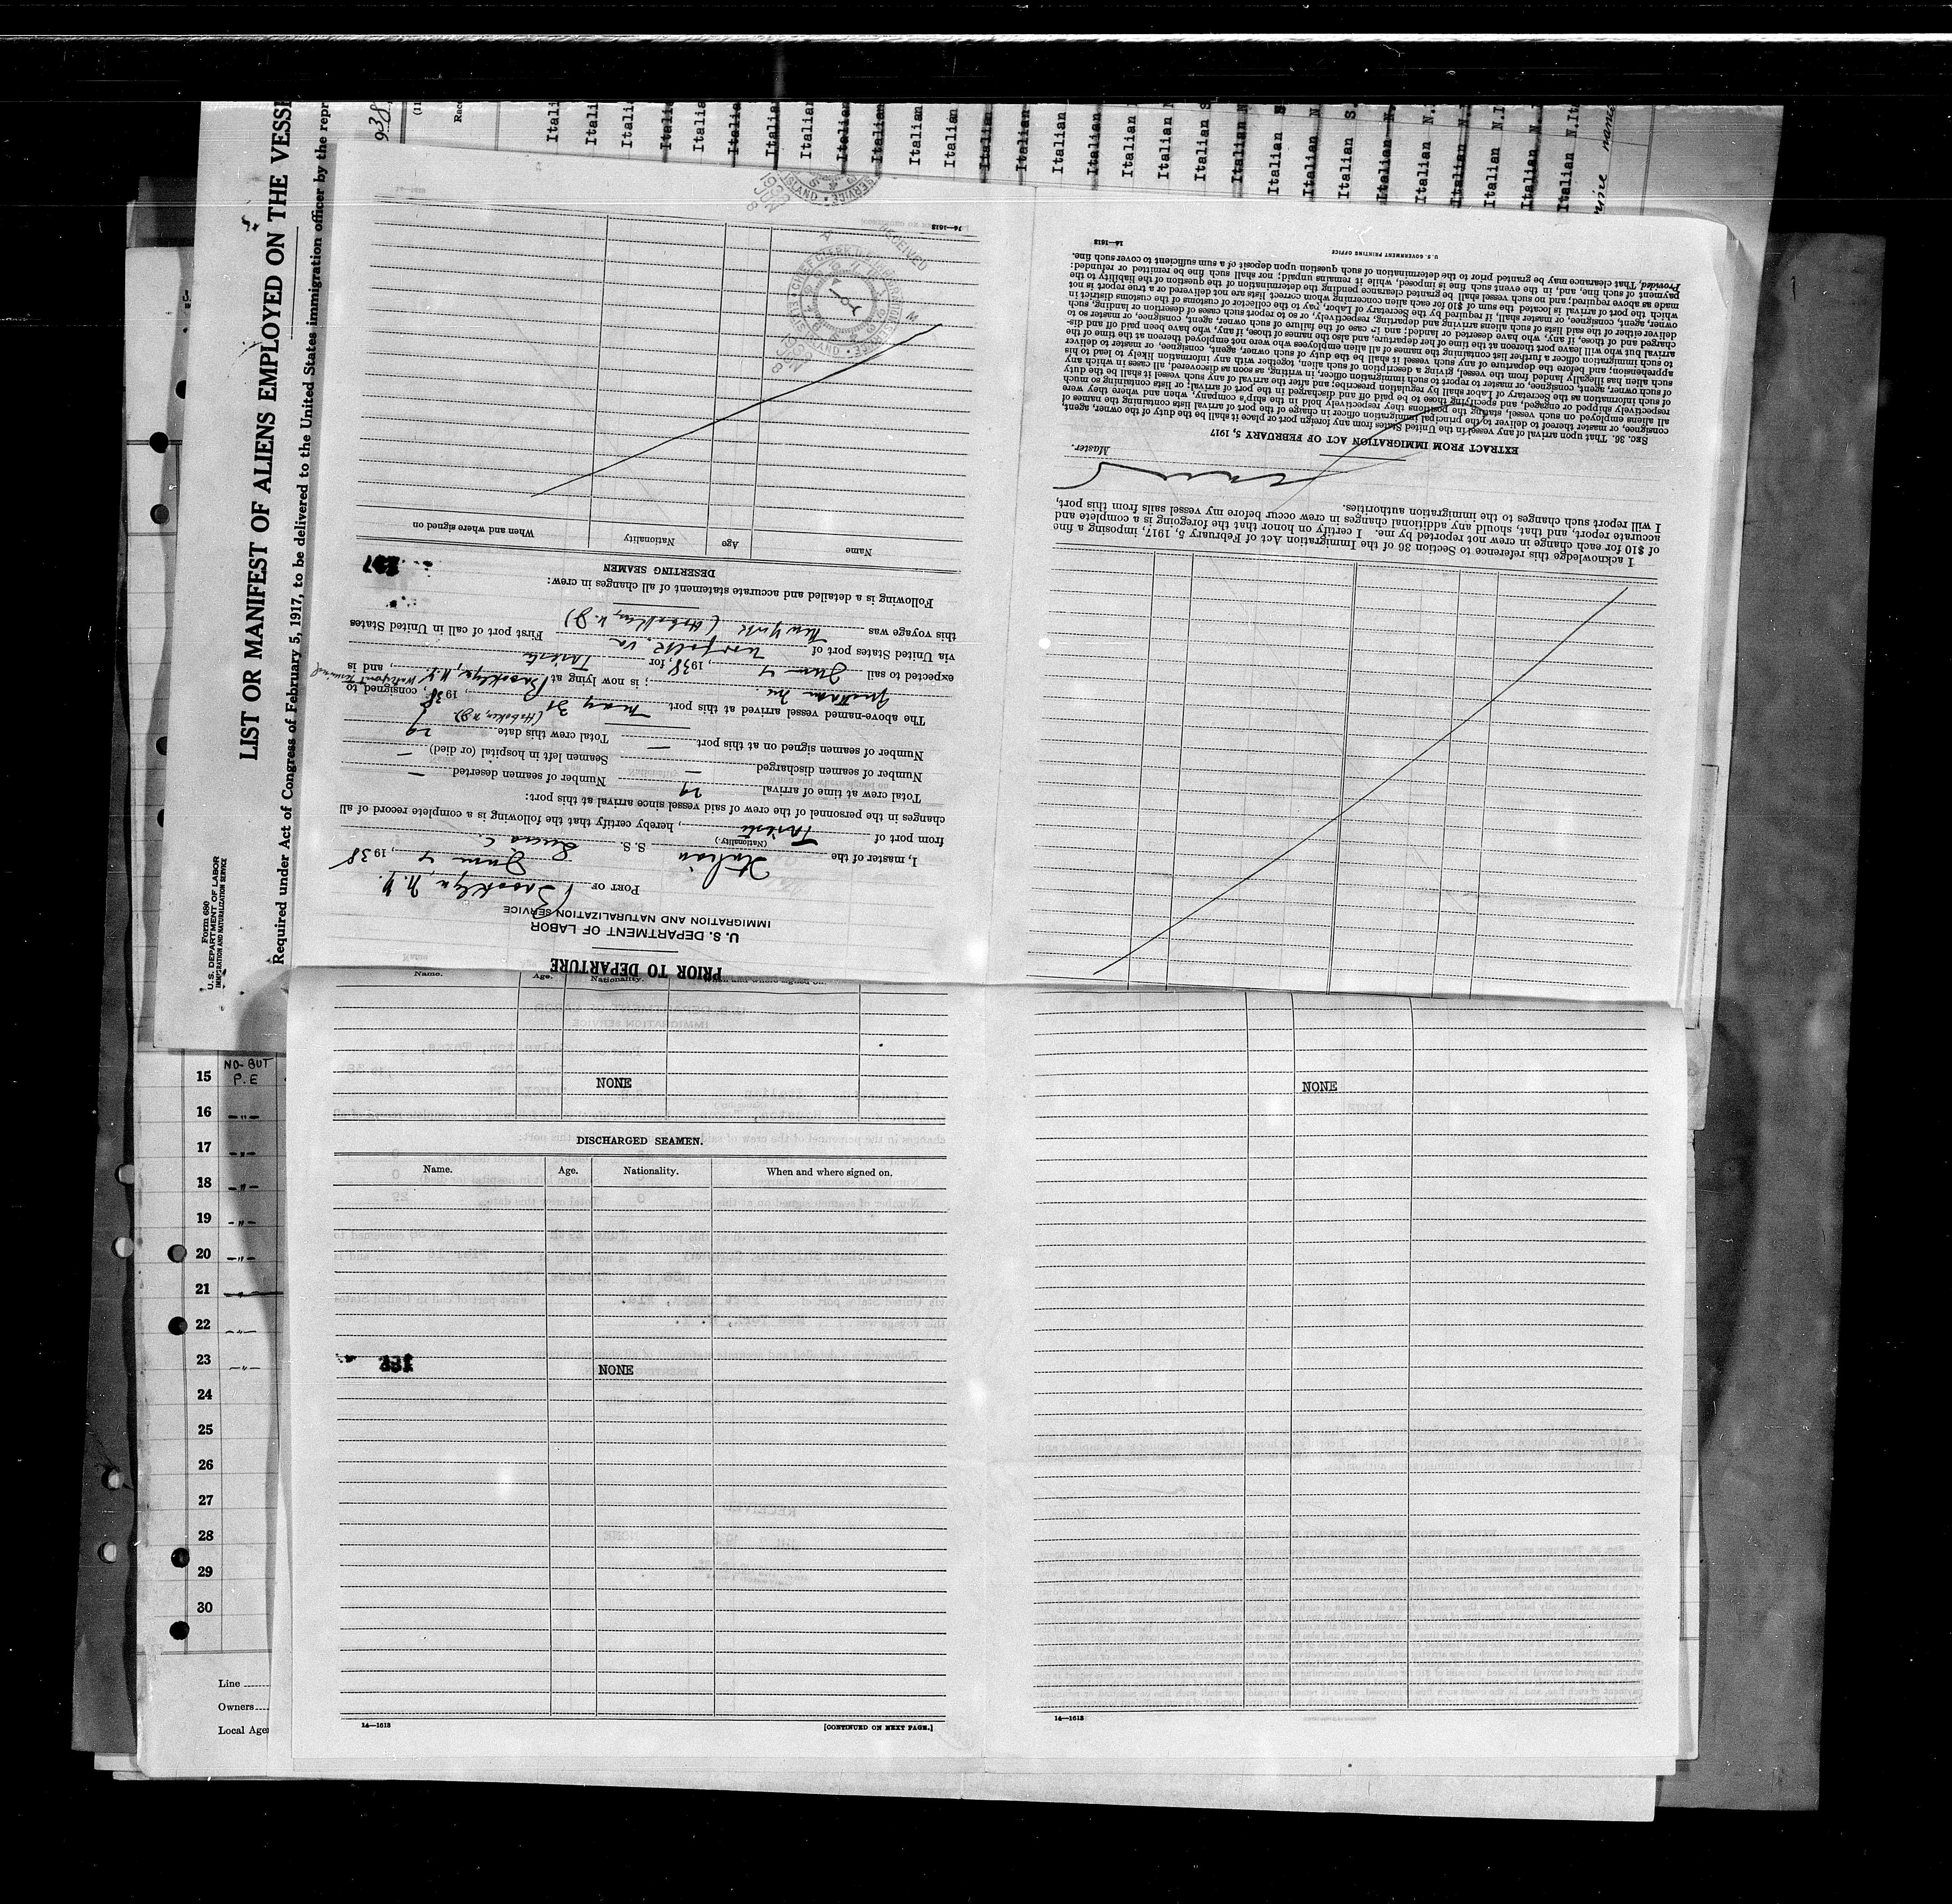 LIST OR MANIFEST OF ALIENS EMPLOYED ON THE VESSE
Required under Act of Congress of February 5, 1917, to be delivered to the United States immigration officer by the repr
Form 680
U. S. DEPARTMENT OF LABOR
IMMIGRATION AND NATURALIZATION SERVICE
938
(11
Race
Italia
Italian
Italian
Italian N.
Italian S.
Italian N.I
Italian N.It
PRIOR TO DEPARTURE
U. S. DEPARTMENT OF LABOR
IMMIGRATION AND NATURALIZATION SERVICE
PORT OF Brooklyn, N.Y.
June 4, 1938
I, master of the Italian S. S. Lucia C.
(Nationality.)
from port of Trieste, hereby certify that the following is a complete record of all
changes in the personnel of the crew of said vessel since arrival at this port:
Total crew at time of arrival 29 Number of seamen deserted —
Number of seamen discharged — Seamen left in hospital (or died) —
Number of seamen signed on at this port — Total crew this date 29
(Hoboken, N.J.)
The above-named vessel arrived at this port May 31, 1938, consigned to
Inc. ; is now lying at Brooklyn, N.Y. Terminal, and is
expected to sail June 4, 1938, for Trieste
via United States port of Norfolk, Va First port of call in United States
this voyage was New York (Hoboken, N.J.)
Following is a detailed and accurate statement of all changes in crew:
DESERTING SEAMEN
Name Age Nationality When and where signed on
RECEIVED
ELLIS ISLAND
8 JUN 1938
14—1613
I acknowledge this reference to Section 36 of the Immigration Act of February 5, 1917, imposing a fine
of $10 for each change in crew not reported by me. I certify on honor that the foregoing is a complete and
accurate report, and that, should any additional changes in crew occur before my vessel sails from this port,
I will report such changes to the immigration authorities.
Master.
EXTRACT FROM IMMIGRATION ACT OF FEBRUARY 5, 1917
SEC. 36. That upon arrival of any vessel in the United States from any foreign port or place it shall be the duty of the owner, agent,
consignee, or master thereof to deliver to the principal immigration officer in charge of the port of arrival lists containing the names of
all aliens employed on such vessel, stating the positions they respectively hold in the ship's company, when and where they were
respectively shipped or engaged, and specifying those to be paid off and discharged in the port of arrival; or lists containing so much
of such information as the Secretary of Labor shall by regulation prescribe; and after the arrival of any such vessel it shall be the duty
of such owner, agent, consignee, or master to report to such immigration officer, in writing, as soon as discovered, all cases in which any
such alien has illegally landed from the vessel, giving a description of such alien, together with any information likely to lead to his
apprehension; and before the departure of any such vessel it shall be the duty of such owner, agent, consignee, or master to deliver
to such immigration officer a further list containing the names of all alien employees who were not employed thereon at the time of the
arrival but who will leave port thereon at the time of her departure, and also the names of those, if any, who have been paid off and dis-
charged and of those, if any, who have deserted or landed; and in case of the failure of such owner, agent, consignee, or master so to
deliver either of the said lists of such aliens arriving and departing, respectively, or so to report such cases of desertion or landing, such
owner, agent, consignee, or master, shall, if required by the Secretary of Labor, pay to the collector of customs of the customs district in
which the port of arrival is located the sum of $10 for each alien concerning whom correct lists are not delivered or a true report is not
made as above required; and no such vessel shall be granted clearance pending the determination of the question of the liability to the
payment of such fine, and, in the event such fine is imposed, while it remains unpaid; nor shall such fine be remitted or refunded:
Provided, That clearance may be granted prior to the determination of such question upon deposit of a sum sufficient to cover such fine.
U. S. GOVERNMENT PRINTING OFFICE
14—1613
Name. Age. Nationality. When and where signed on.
NONE
DISCHARGED SEAMEN.
Name. Age. Nationality. When and where signed on.
NONE
14—1613
[CONTINUED ON NEXT PAGE.]
NONE
14—1613
15 NO-BUT P.E
16 -"-
17 -"-
18 -"-
19 -"-
20 -"-
21
22 -"-
23 -"-
24
25
26
27
28
29
30
Line
Owners
Local Age